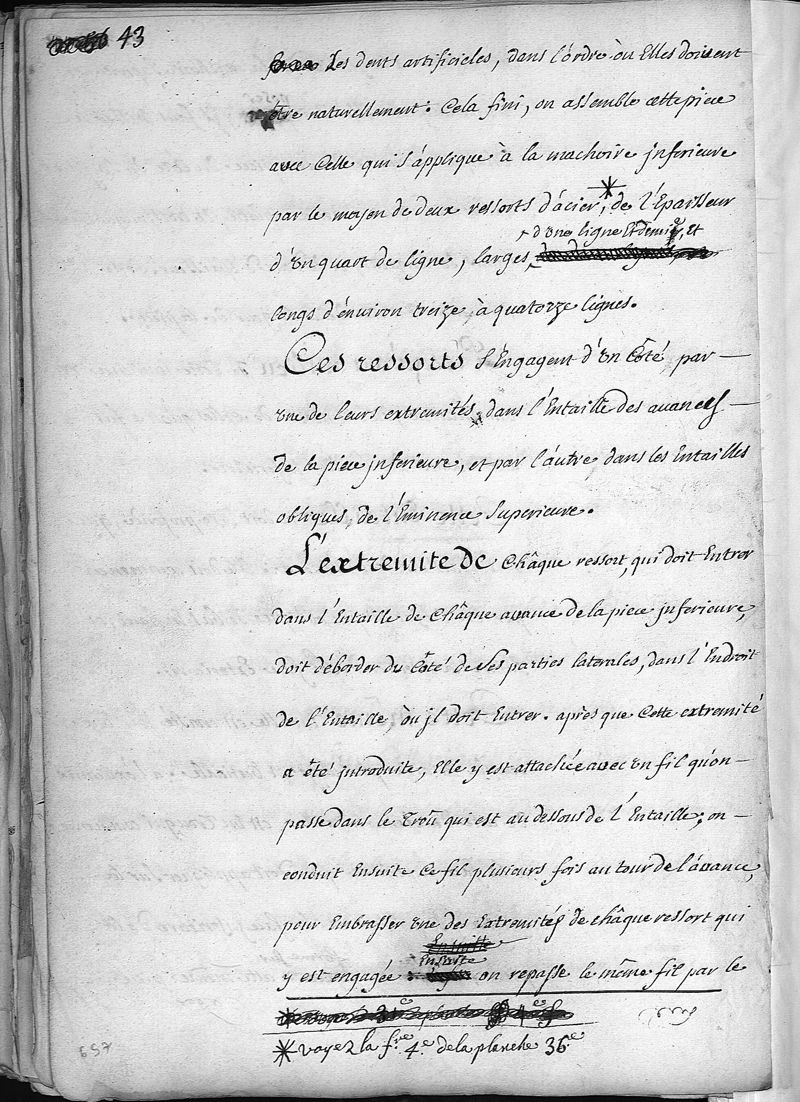 43
les dents artificieles, dans l'ordre où Elles doivent
être naturellement. Cela fini, on assemble cette piece
avec Celle qui s'applique à la machoire jnferieure
par le moyen de deux ressorts d'acier,* de l'Epaisseur
d'une ligne Et demie, et
d'un quart de ligne, larges
longs d'environ treize, à quatorze lignes.
Ces ressorts s'Engagent d'un Côté par —
une de leurs extremités, dans l'Entaille des avances —
de la piece jnferieure, et par l'autre dans les Entailles
obliques, de l'Eminence superieure.
L'extremite de Châque ressort, qui doit Entrer
dans l'Entaille de Châque avance de la piece jnferieure,
doit déborder du Côté de ses parties laterales, dans l'Endroit
de l'Entaille, où jl doit Entrer. après que Cette extremité
a été jntroduite, Elle y est attachée avec un fil qu'on —
passe dans le Trou qui est au dessous de l'Entaille; on —
conduit Ensuite Ce fil plusieurs fois au tour de l'avance,
pour Embrasser une des Extremités de châque ressort qui
Ensuitte
ensuite
y est engagée on repasse le même fil par le
* voyez la f.re 4.e de la planche 36.e
657